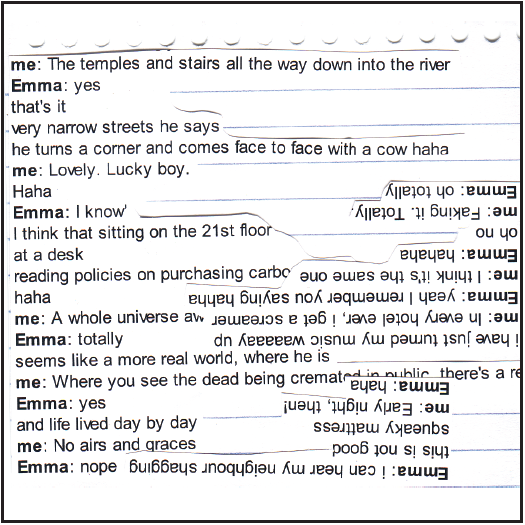 me: The temples and stairs all the way down into the river
Emma: yes
that's it
very narrow streets he says
he turns a corner and comes face to face with a cow haha
me: Lovely. Lucky boy.
Haha
Emma: I know'
I think that sitting on the 21st floor
at a desk
reading policies on purchasing carbo
haha
me: A whole universe aw
Emma: totally
seems like a more real world, where he is
me: Where you see the dead being cremated in public, there's a re
Emma: yes
and life lived day by day
me: No airs and graces
Emma: nope
Emma: i can hear my neighbour shagging
this is not good
squeaky mattress
me: Early night, then!
Emma: haha
i have just turned my music waaaaay up
me: In every hotel ever, i get a screamer
Emma: yeah I remember you saying hahha
me: I think it's the same one
Emma: hahaha
oh no
me: Faking it. Totally.
Emma: oh totally